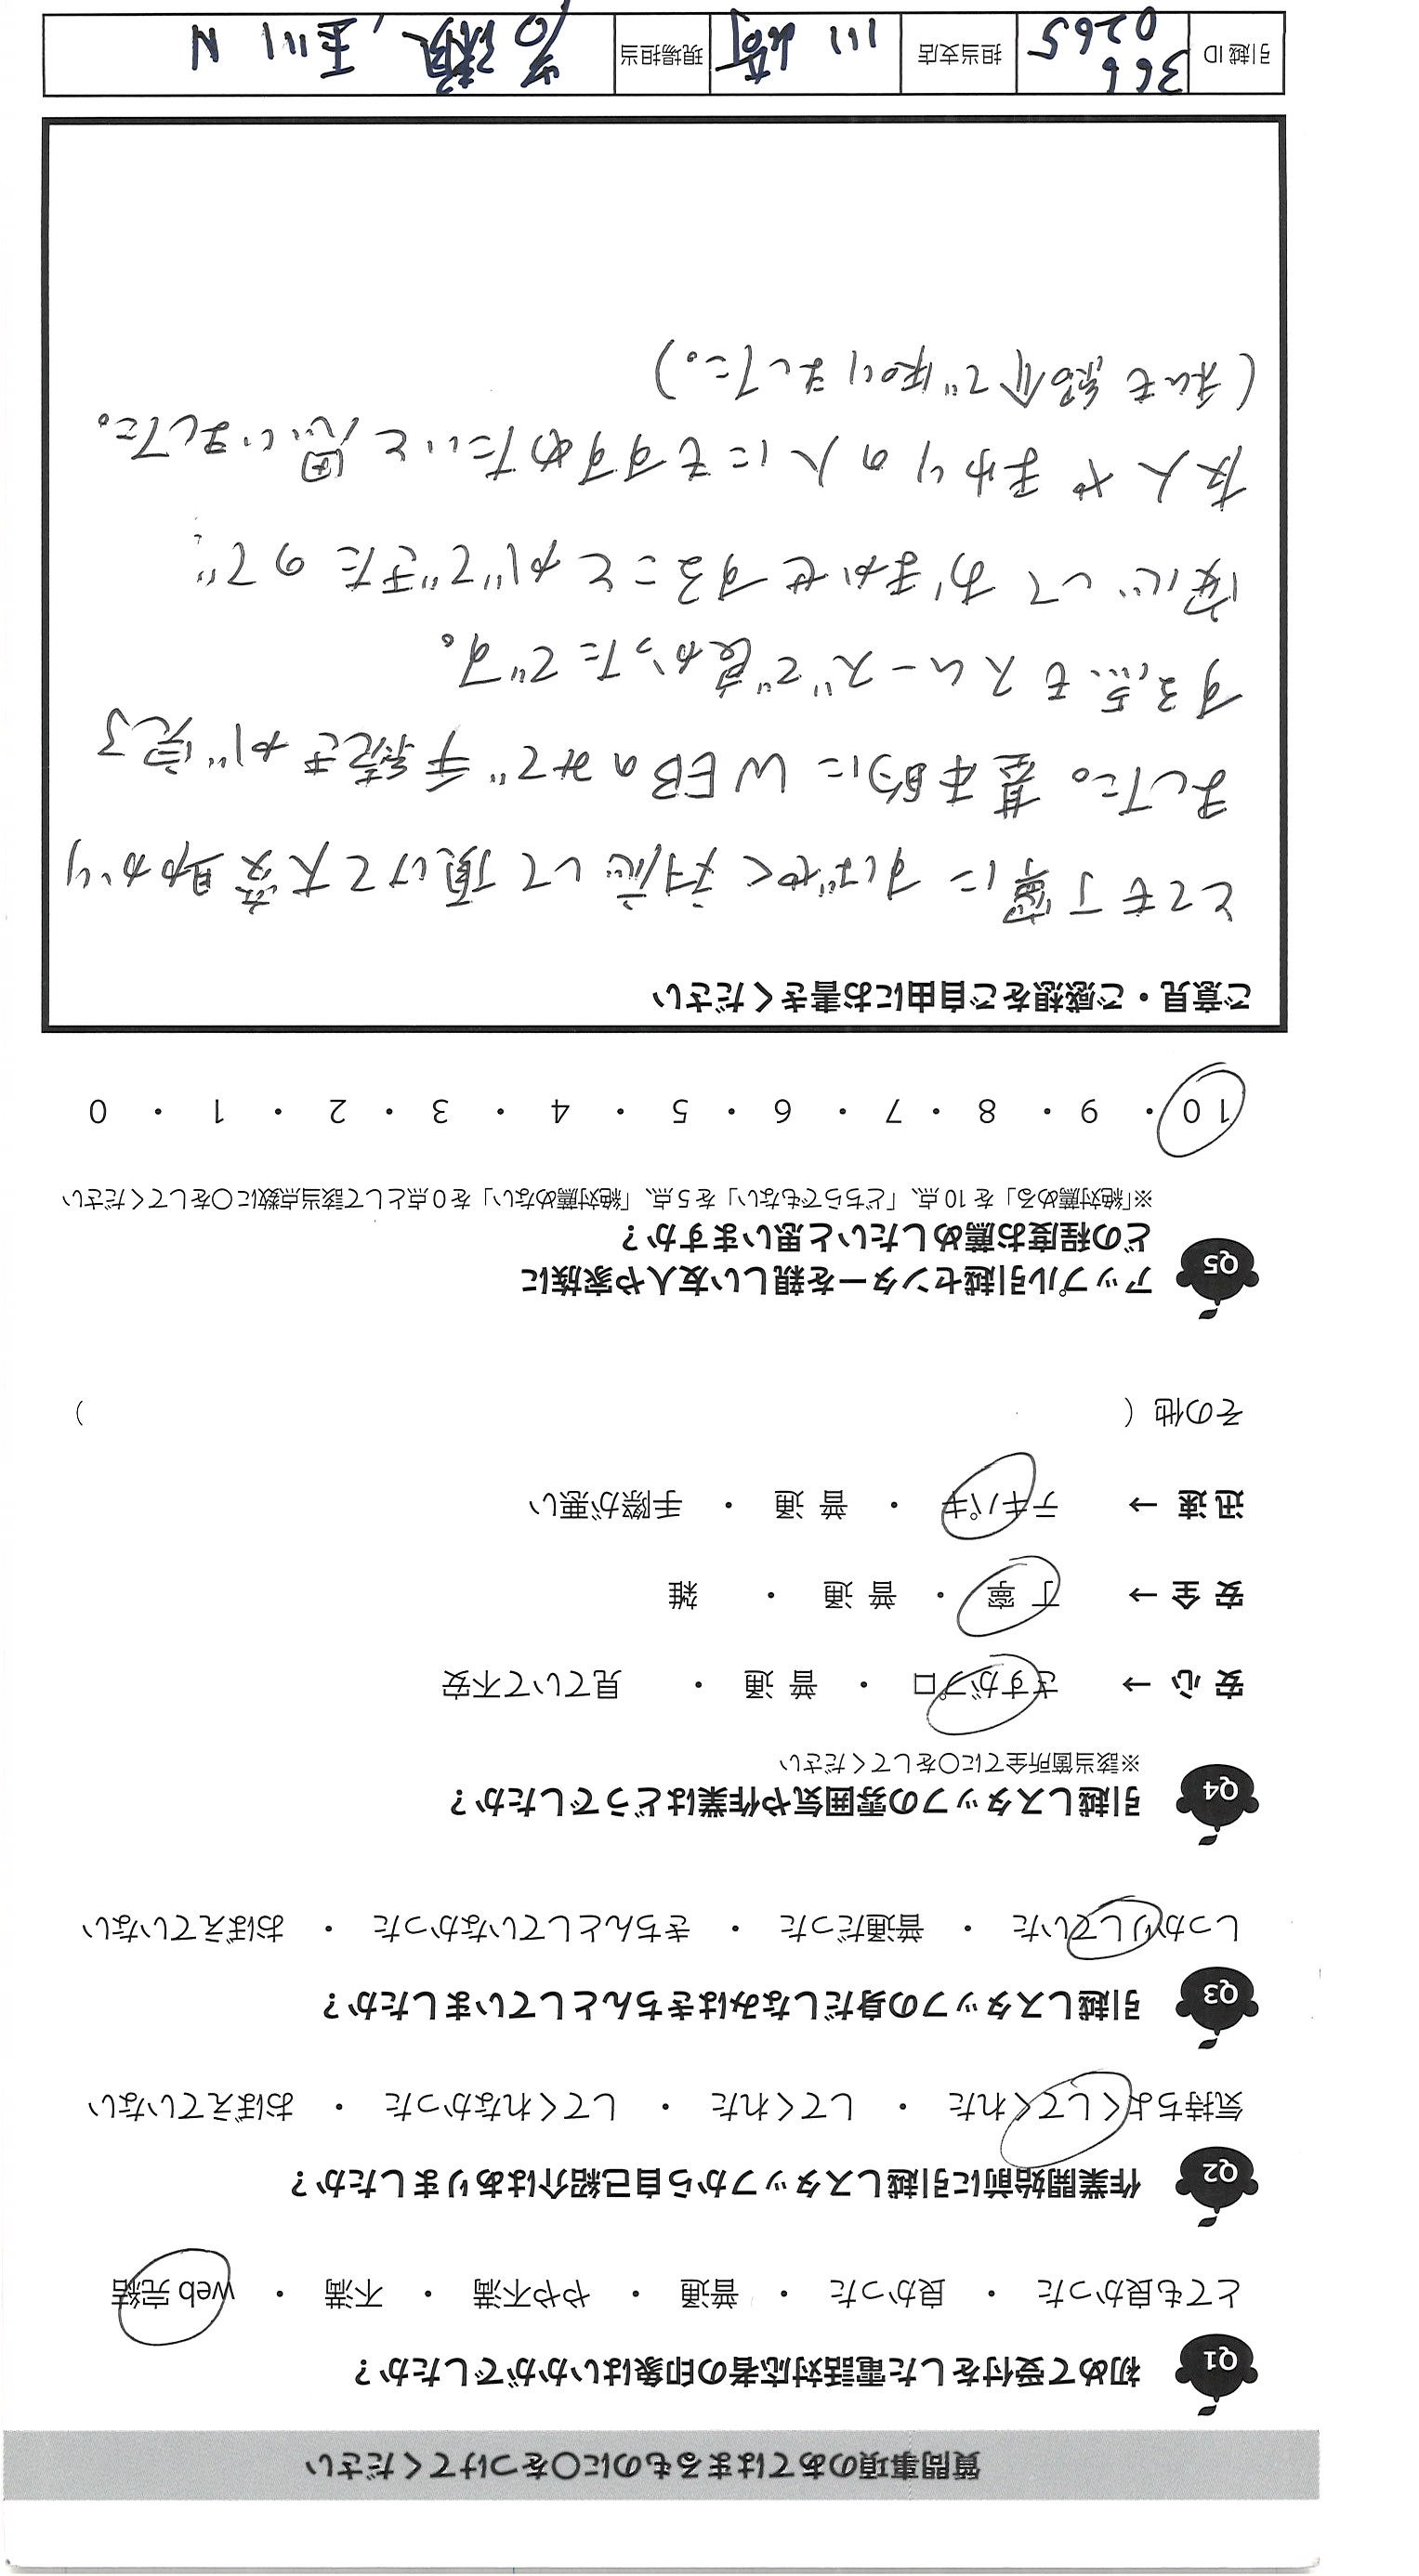 質問事項のあてはまるものに〇をつけてください
Q1 初めて受付をした電話対応者の印象はいかがでしたか？
とても良かった ・ 良かった ・ 普通 ・ やや不満 ・ 不満 ・ web 完結
Q2 作業開始前に引越しスタッフから自己紹介はありましたか？
気持ちよくしてくれた ・ してくれた ・ してくれなかった ・ おぼえていない
Q3 引越しスタッフの身だしなみはきちんとしていましたか？
しっかりしていた ・ 普通だった ・ きちんとしていなかった ・ おぼえていない
Q4 引越しスタッフの雰囲気や作業はどうでしたか？
※該当箇所全てに〇をしてください
安 心 → さすがプロ ・ 普 通 ・ 見ていて不安
安 全 → 丁 寧 ・ 普 通 ・ 雑
迅 速 → テキパキ ・ 普 通 ・ 手際が悪い
その他（ ）
Q5 アップル引越センターを親しい友人や家族に
どの程度お薦めしたいと思いますか？
※「絶対薦める」を 10 点、「どちらでもない」を 5 点、「絶対薦めない」を 0 点として該当点数に〇をしてください
10 ・ 9 ・ 8 ・ 7 ・ 6 ・ 5 ・ 4 ・ 3 ・ 2 ・ 1 ・ 0
ご意見・ご感想をご自由にお書きください
とても丁寧に すばやく対応して頂けて大変助かり
ました。基本的に WEBのみで 手続きが完了
する点もスムーズで良かったです。
安心して おまかせすることができたので
友人やまわりの人にもすすめたいと思いました。
（私も紹介で知りました。）
引越 ID 366 0265 担当支店 川崎 現場担当 玉川 N